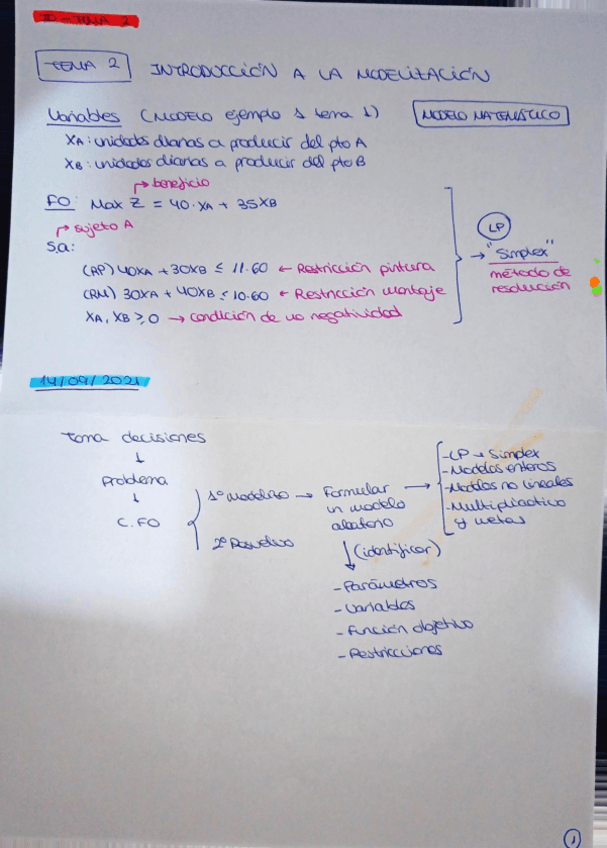 IO - TEMA 2
TEMA 2 INTRODUCCIÓN A LA MODELIZACIÓN
Variables (MODELO ejemplo 1 tema 1) MODELO MATEMÁTICO
XA: unidades diarias a producir del pto A
XB: unidades diarias a producir del pto B
beneficio
FO: Max Z = 40·XA + 35XB
sujeto A
s.a:
(RP) 40XA + 30XB ≤ 11·60 ← Restricción pintura
(RM) 30XA + 40XB ≤ 10·60 ← Restricción montaje
XA, XB ≥ 0 → condición de no negatividad
LP
→ "Simplex"
método de
resolución
14/09/2021
toma decisiones
↓
Problema
↓
C. FO
1º Modelizo → Formular
un modelo
2º Resuelvo
→ - LP → Simplex
- Modelos enteros
- Modelos no lineales
- Multiobjetivo
y metas
↓ (identificar)
- Parámetros
- Variables
- Función objetivo
- Restricciones
1